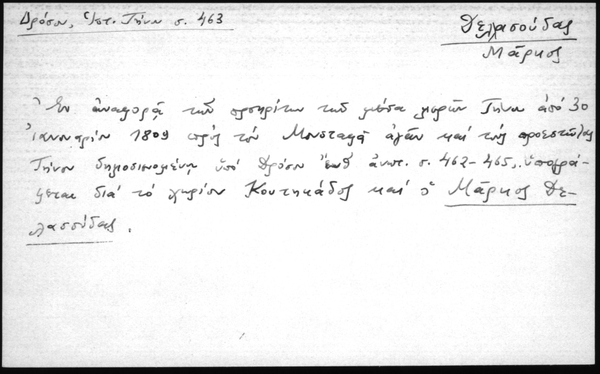 Δρόσου, Ἱστ. Τήνου σ. 463
Δελασούδας
Μάρκος
Ἐν ἀναφορᾷ τῶν προκρίτων τῶν μέσα μερῶν Τήνου ἀπό 30
Ἰανουαρίου 1809 πρός τόν Μουσταφᾶ ἀγᾶν καί τούς προεστῶτας
Τήνου δημοσιευομένῃ ὑπό Δρόσου ἔνθ ἀνωτ. σ. 462-465, ὑπογρά-
φεται διά τό χωρίον Κουτηκάδος καί ὁ Μάρκος Δε-
λασσούδας.